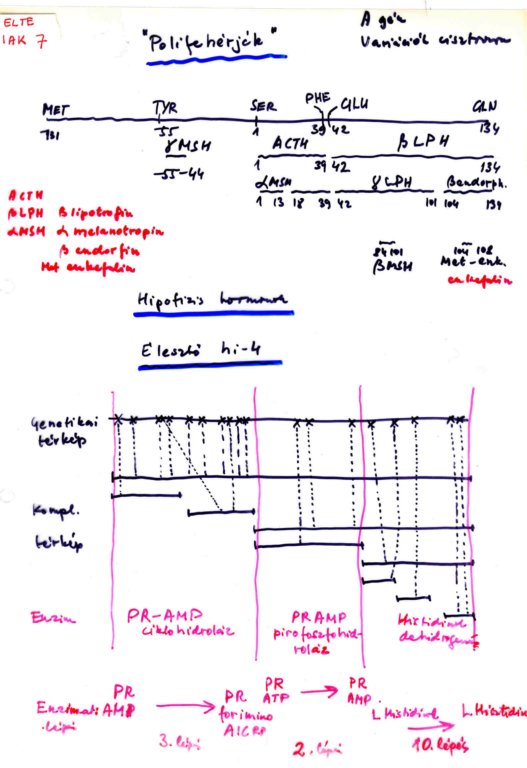 ELTE
IAK 7
"Polifehérjék"
A gén
Variációk cisztronra
MET TYR SER PHE GLU GLN
-131 -55 1 39 42 134
γMSH ACTH βLPH
-55-44 1 39 42 134
αMSH γLPH βendorph.
1 13 18 39 42 101 104 134
ACTH
βLPH β lipotrofin
αMSH α melanotropin
β endorfin
Met enkefalin
84 101 104 108
βMSH Met-enk.
enkefalin
Hipofizis hormonok
Élesztő hi-4
Genetikai
térkép
Kompl.
térkép
Enzim PR-AMP PRAMP Histidinol
ciklohidroláz pirofoszfohid- dehidrogenáz
roláz
PR PR PR
ATP AMP
Enzimati AMP PR L Histidinol L. Hisztidin
lépés forimino
AICRP
3. lépés 2. lépés 10. lépés